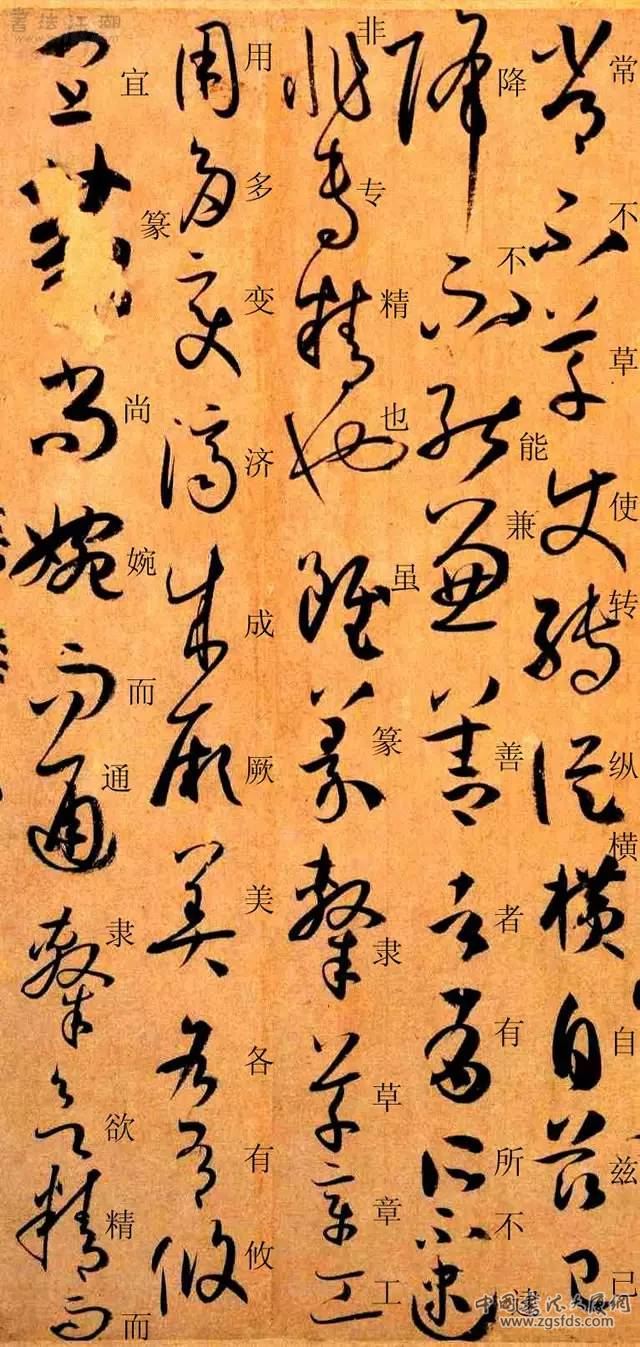 常不草使转纵横自兹已
降不能兼善者有所不逮
非专精也虽篆隶草章工
用多变济成厥美各有攸
宜篆尚婉而通隶欲精而
書法江湖
www.zgsfds.com